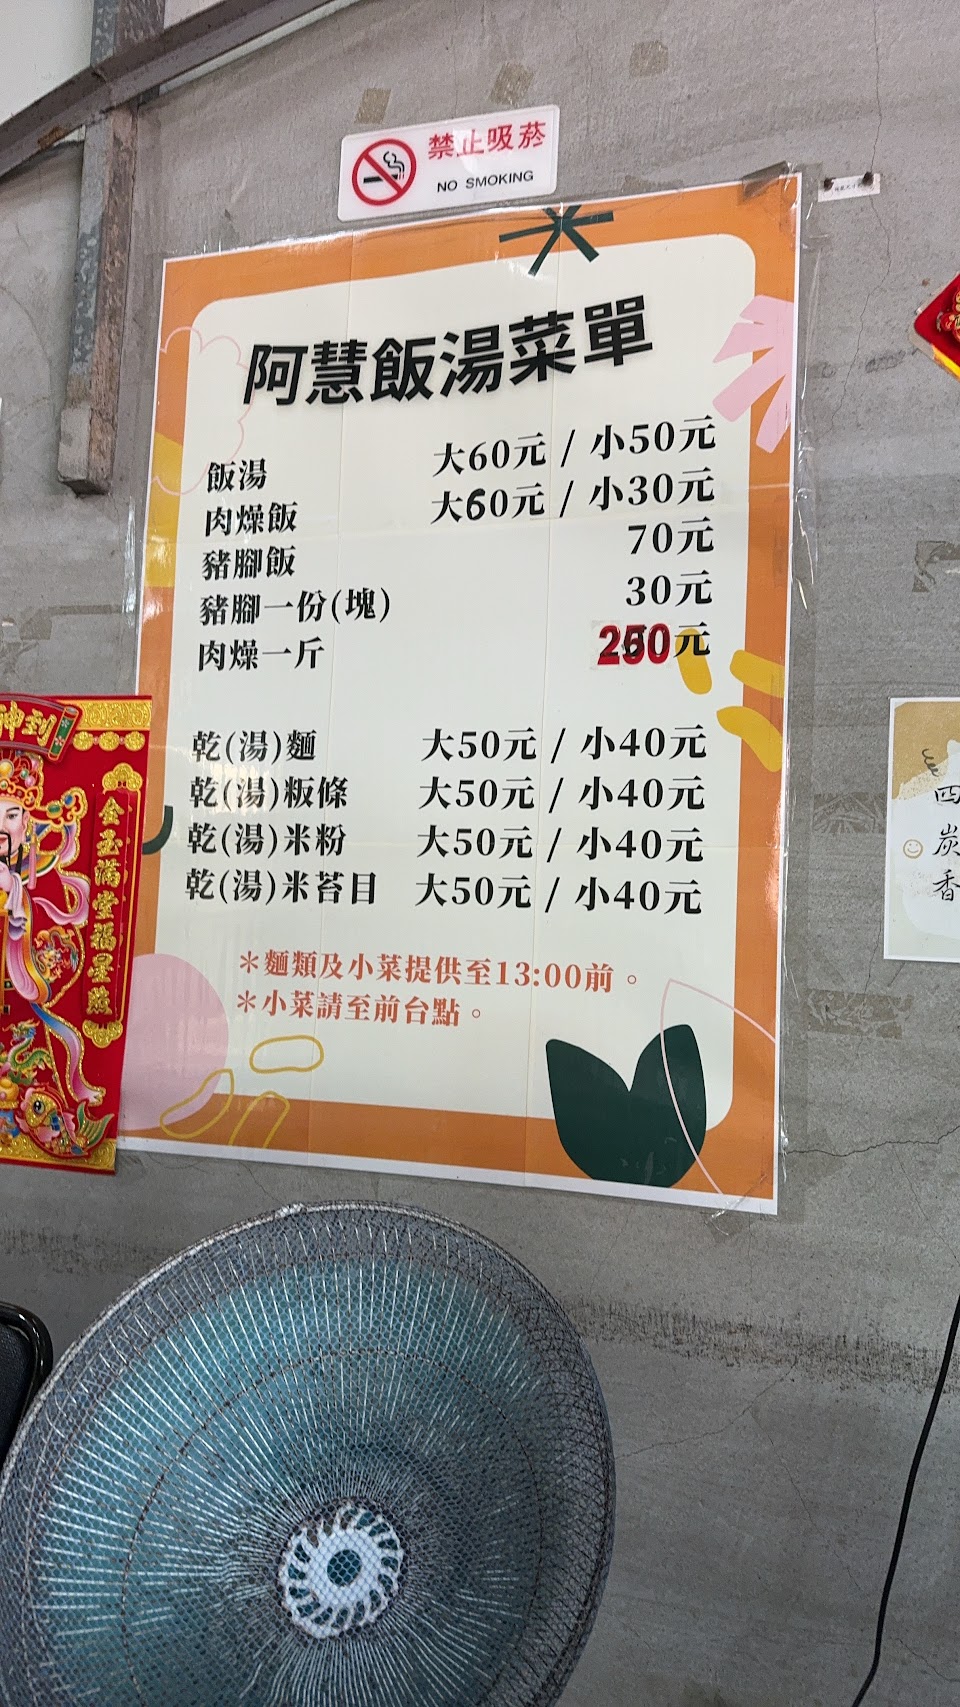 禁止吸菸
NO SMOKING
阿慧飯湯菜單
飯湯 大60元 / 小50元
肉燥飯 大60元 / 小30元
豬腳飯 70元
豬腳一份(塊) 30元
肉燥一斤 元
乾(湯)麵 大50元 / 小40元
乾(湯)粄條 大50元 / 小40元
乾(湯)米粉 大50元 / 小40元
乾(湯)米苔目 大50元 / 小40元
＊麵類及小菜提供至13:00前。
＊小菜請至前台點。
神到
金玉滿堂福星照
四
炭
香